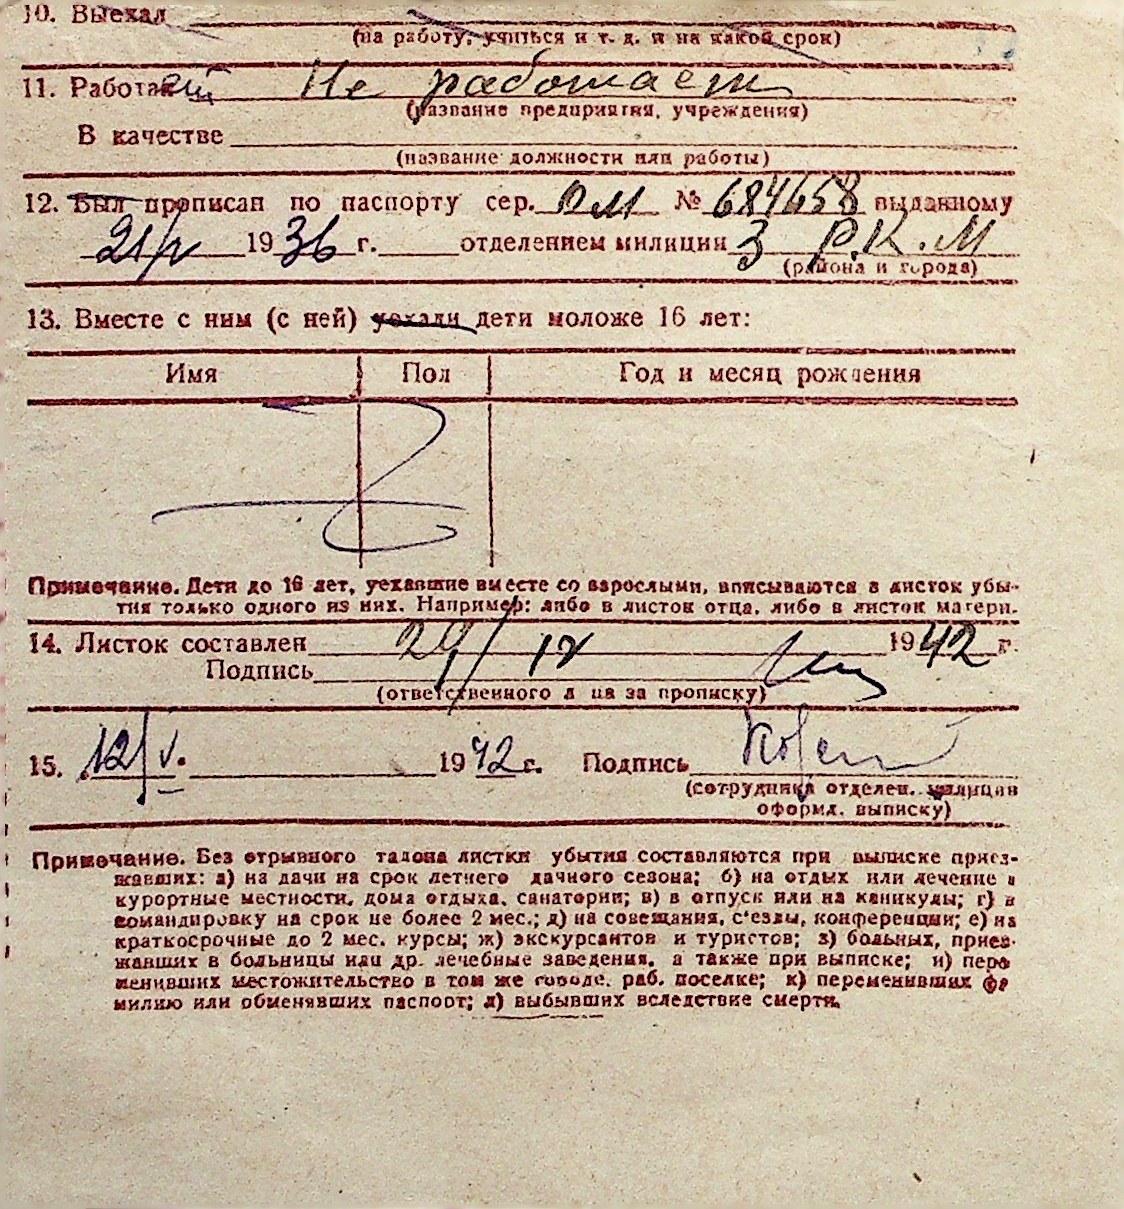 10. Выехал
(на работу, учиться и т. д. и на какой срок)
11. Работает Не работает
(название предприятия, учреждения)
В качестве
(название должности или работы)
12. Был прописан по паспорту сер. ОМ № 684658 выданному
21/V 1936 г. отделением милиции 3 Р.К.М
(района и города)
13. Вместе с ним (с ней) уехали дети моложе 16 лет:
Имя Пол Год и месяц рождения
Примечание. Дети до 16 лет, уехавшие вместе со взрослыми, вписываются в листок убы-
тия только одного из них. Например: либо в листок отца, либо в листок матери.
14. Листок составлен 29/IV 1942 г.
Подпись
(ответственного лица за прописку)
15. 12/V. 1942 г. Подпись
(сотрудника отделен. милиции
оформл. выписку)
Примечание. Без отрывного талона листки убытия составляются при выписке приез-
жавших: а) на дачи на срок летнего дачного сезона; б) на отдых или лечение в
курортные местности, дома отдыха, санатории; в) в отпуск или на каникулы; г) в
командировку на срок не более 2 мес.; д) на совещания, с'езды, конференции; е) на
краткосрочные до 2 мес. курсы; ж) экскурсантов и туристов; з) больных, приез-
жавших в больницы или др. лечебные заведения, а также при выписке; и) пере
менивших местожительство в том же городе, раб. поселке; к) переменивших фа
милию или обменявших паспорт; л) выбывших вследствие смерти.